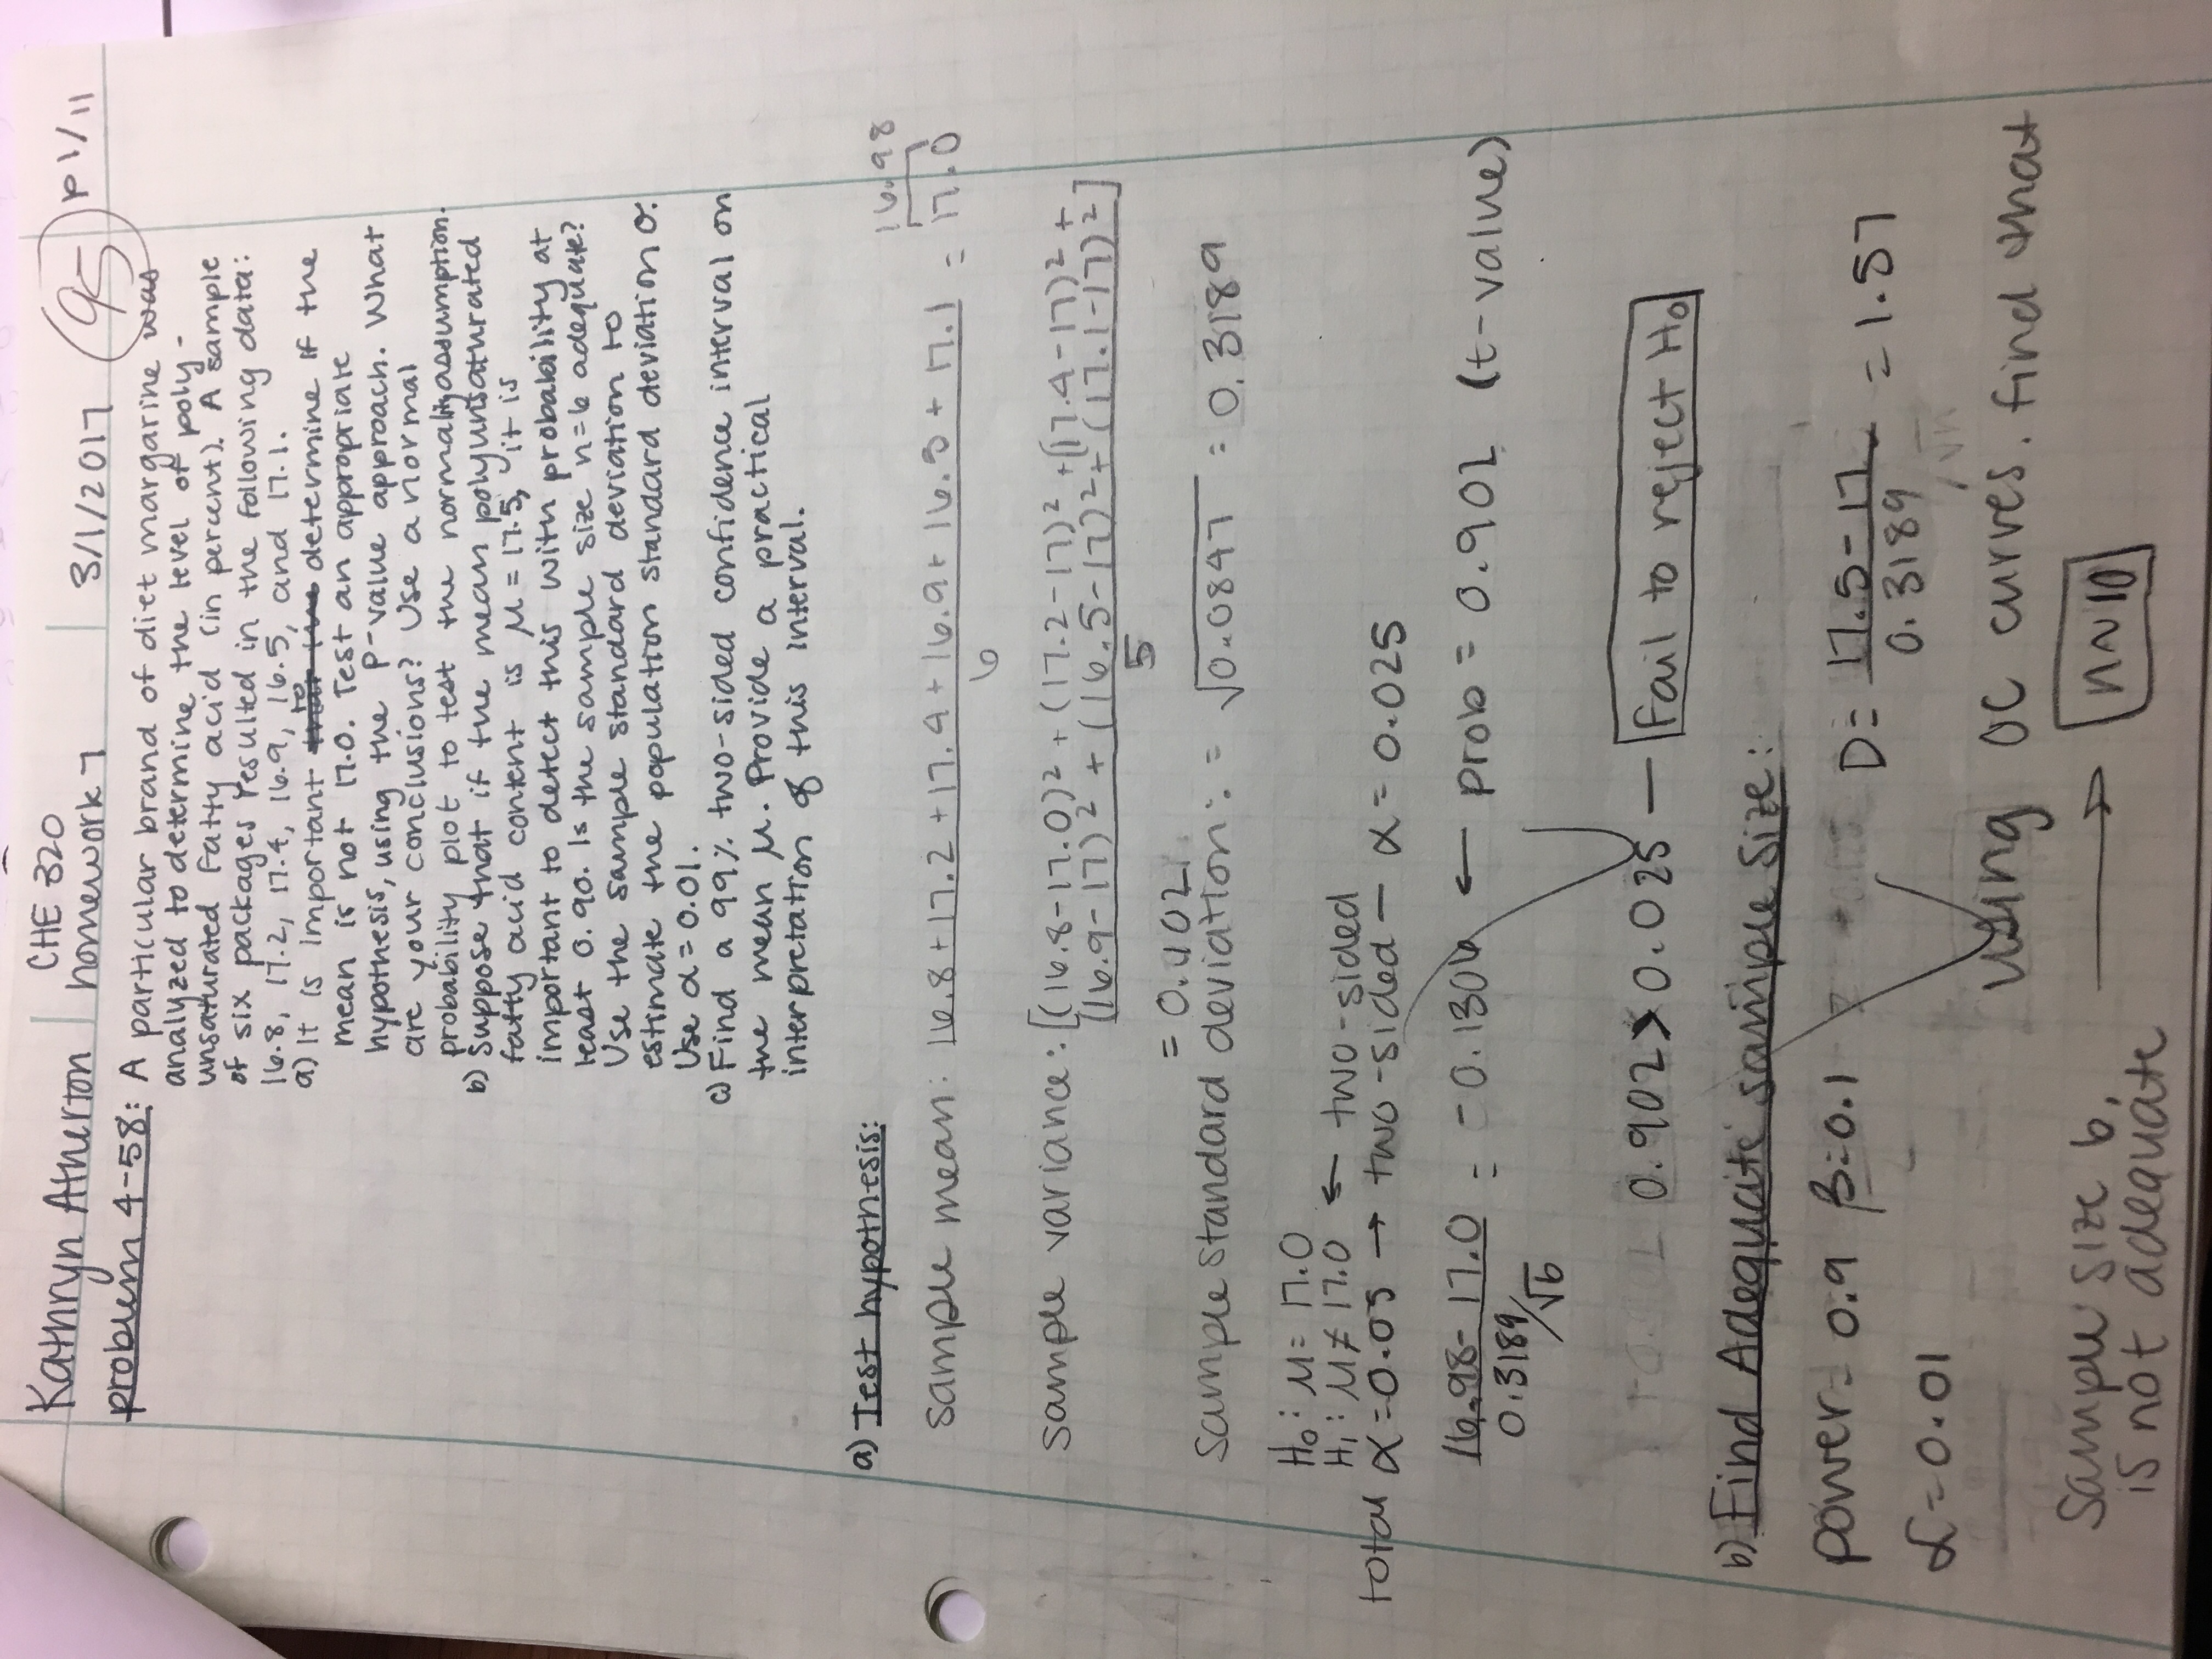 Kathryn Atherton
CHE 320
homework 7
3/1/2017
95
p 1/11
problem 4-58: A particular brand of diet margarine was
analyzed to determine the level of poly-
unsaturated fatty acid (in percent). A sample
of six packages resulted in the following data:
16.8, 17.2, 17.4, 16.9, 16.5, and 17.1.
a) It is important to determine if the
mean is not 17.0. Test an appropriate
hypothesis, using the P-value approach. What
are your conclusions? Use a normal
probability plot to test the normality assumption.
b) Suppose that if the mean polyunsaturated
fatty acid content is μ = 17.5, it is
important to detect this with probability at
least 0.90. Is the sample size n=6 adequate?
Use the sample standard deviation to
estimate the population standard deviation σ.
Use α = 0.01.
c) Find a 99% two-sided confidence interval on
the mean μ. Provide a practical
interpretation of this interval.
a) Test hypothesis:
16.98
sample mean: 16.8 + 17.2 + 17.4 + 16.9 + 16.5 + 17.1 = 17.0
6
sample variance: [(16.8-17.0)² + (17.2-17)² + (17.4-17)² +
(16.9-17)² + (16.5-17)² + (17.1-17)²]
5
= 0.102
sample standard deviation: = √0.0847 = 0.3189
H₀: μ = 17.0
H₁: μ ≠ 17.0 ← two-sided
total α = 0.05 → two-sided — α = 0.025
16.98 - 17.0 = -0.1306 ← prob = 0.902 (t-value)
0.3189/√6
0.902 > 0.025 — Fail to reject H₀
b) Find Adequate sample size:
power = 0.9 β = 0.1
D = 17.5 - 17 = 1.57
0.3189
α = 0.01
using OC curves, find that
sample size 6, → n ~ 10
is not adequate